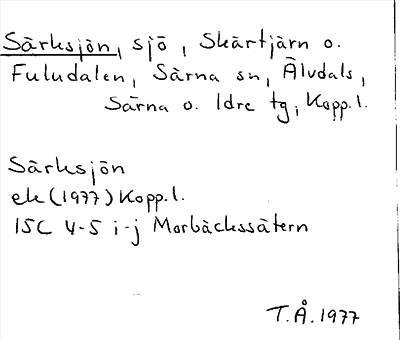 Särksjön, sjö, Skärtjärn o.
Fuludalen, Särna sn, Älvdals,
Särna o. Idre tg, Kopp.l.
Särksjön
ek (1977) Kopp.l.
15C 4-5 i-j Morbäckssätern
T.Å. 1977